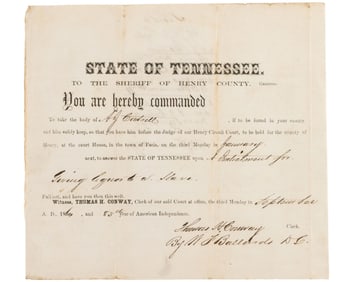 STATE OF TENNESSEE.
TO THE SHERIFF OF HENRY COUNTY, Greeting:
You are hereby commanded
To take the body of A J if to be found in your county
and him safely keep, so that you have him before the Judge of our Henry Circuit Court, to be held for the county of
Henry, at the court House, in the town of Paris, on the third Monday in January
next, to answer the STATE OF TENNESSEE upon Indictment for
Giving liquor to a Slave.
Fail not, and have you then this writ.
Witness, THOMAS H. CONWAY, Clerk of our said Court at office, the third Monday in September
A. D., 18 and 85th year of American Independence.
Thomas H Conway Clerk.
By W F D.C.